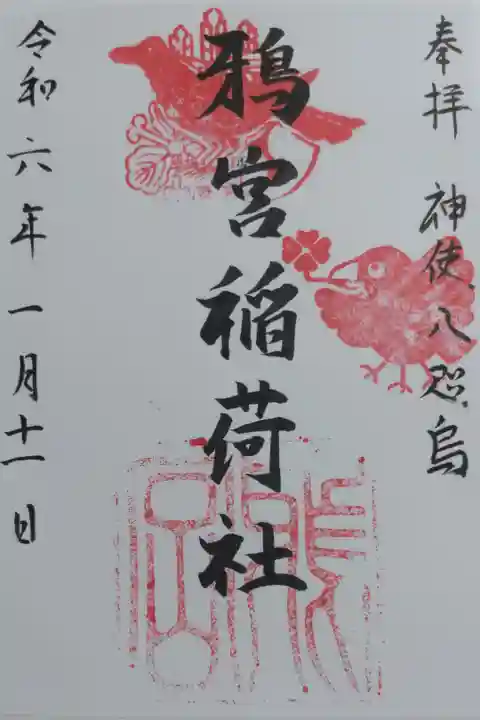 奉拝 神使、八咫烏
鴉宮稲荷社
令和六年一月十一日